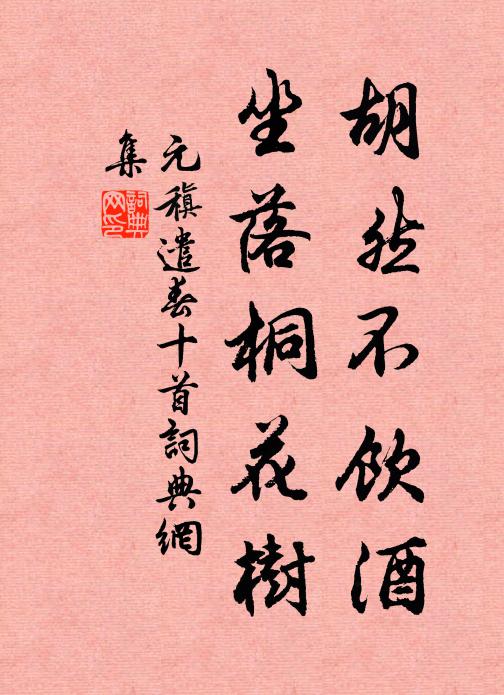 胡然不飲酒
坐落桐花樹
元稹遣春十首詞典網
集
詞典
网印